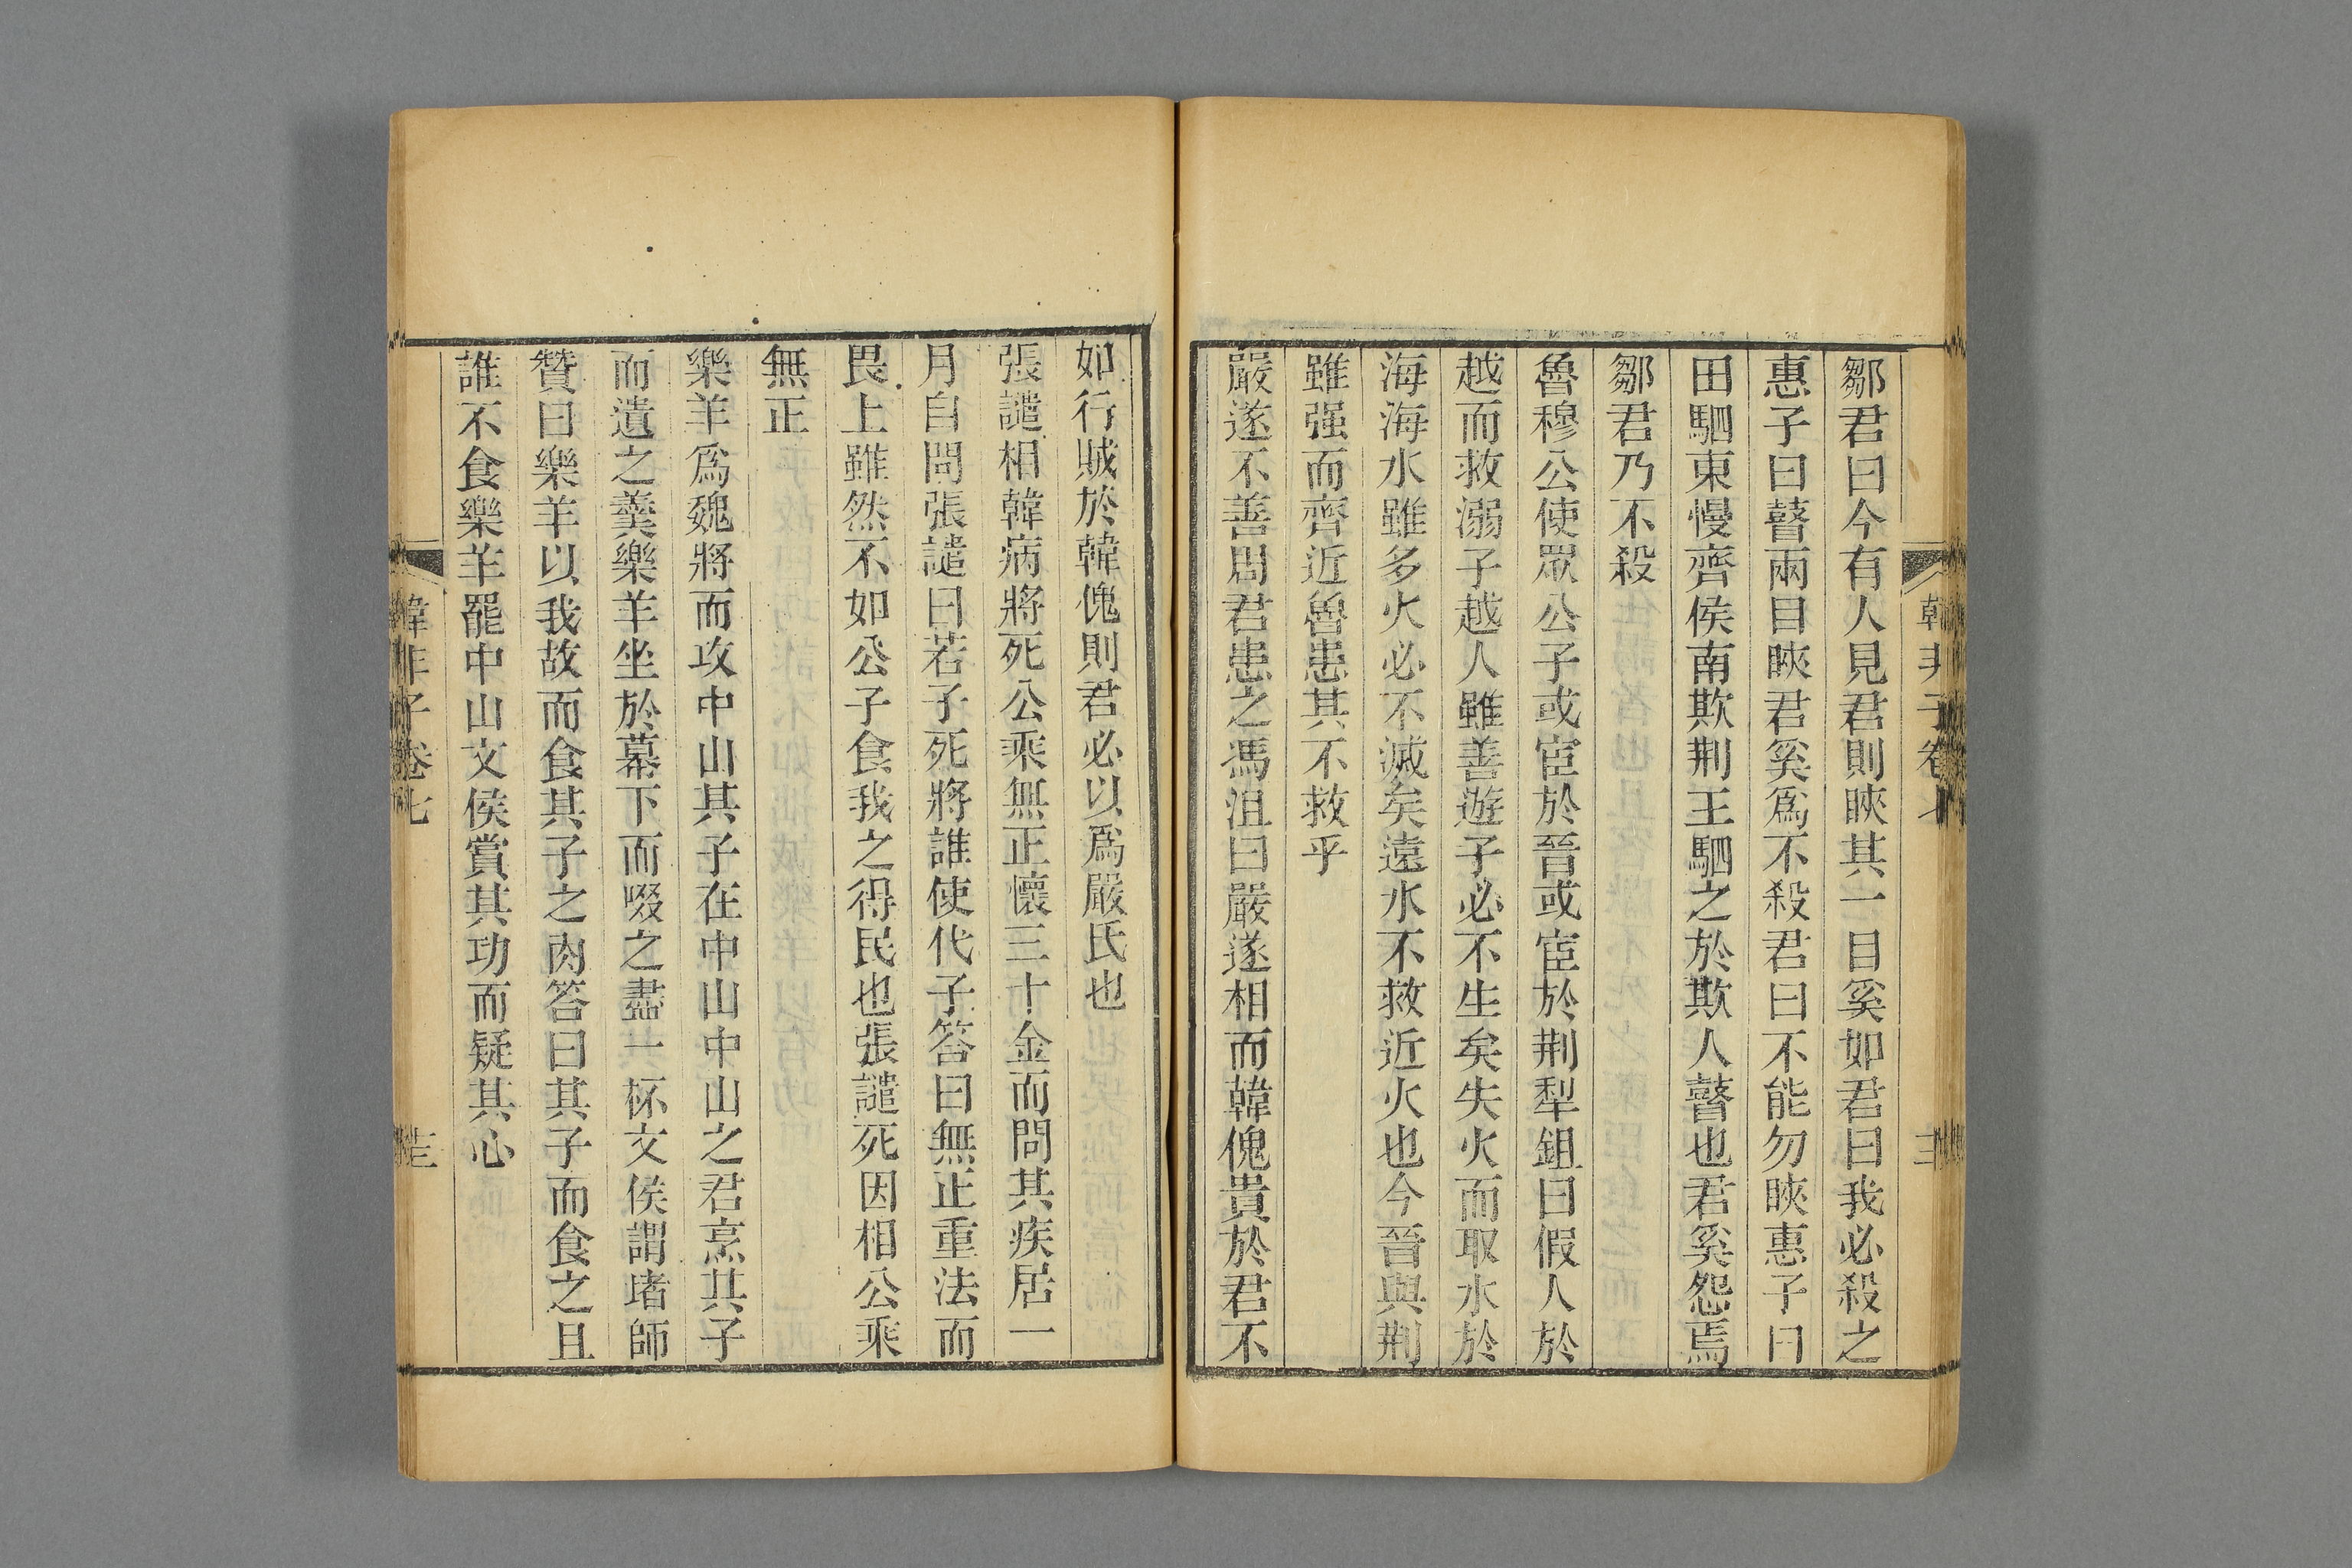 韓非子卷七
鄒君曰今有人見君則䀹其一目奚如君曰我必殺之
惠子曰瞽兩目䀹君奚爲不殺君曰不能勿䀹惠子曰
田駟東慢齊侯南欺荆王駟之於欺人瞽也君奚怨焉
鄒君乃不殺
魯穆公使眾公子或宦於晉或宦於荆犁鉏曰假人於
越而救溺子越人雖善遊子必不生矣失火而取水於
海海水雖多火必不滅矣遠水不救近火也今晉與荆
雖强而齊近魯患其不救乎
嚴遂不善周君患之馮沮曰嚴遂相而韓傀貴於君不
如行賊於韓傀則君必以爲嚴氏也
張譴相韓病將死公乘無正懷三十金而問其疾居一
月自問張譴曰若子死將誰使代子答曰無正重法而
畏上雖然不如公子食我之得民也張譴死因相公乘
無正
樂羊爲魏將而攻中山其子在中山中山之君烹其子
而遺之羹樂羊坐於幕下而啜之盡一杯文侯謂堵師
贊曰樂羊以我故而食其子之肉答曰其子而食之且
誰不食樂羊罷中山文侯賞其功而疑其心
韓非子卷七